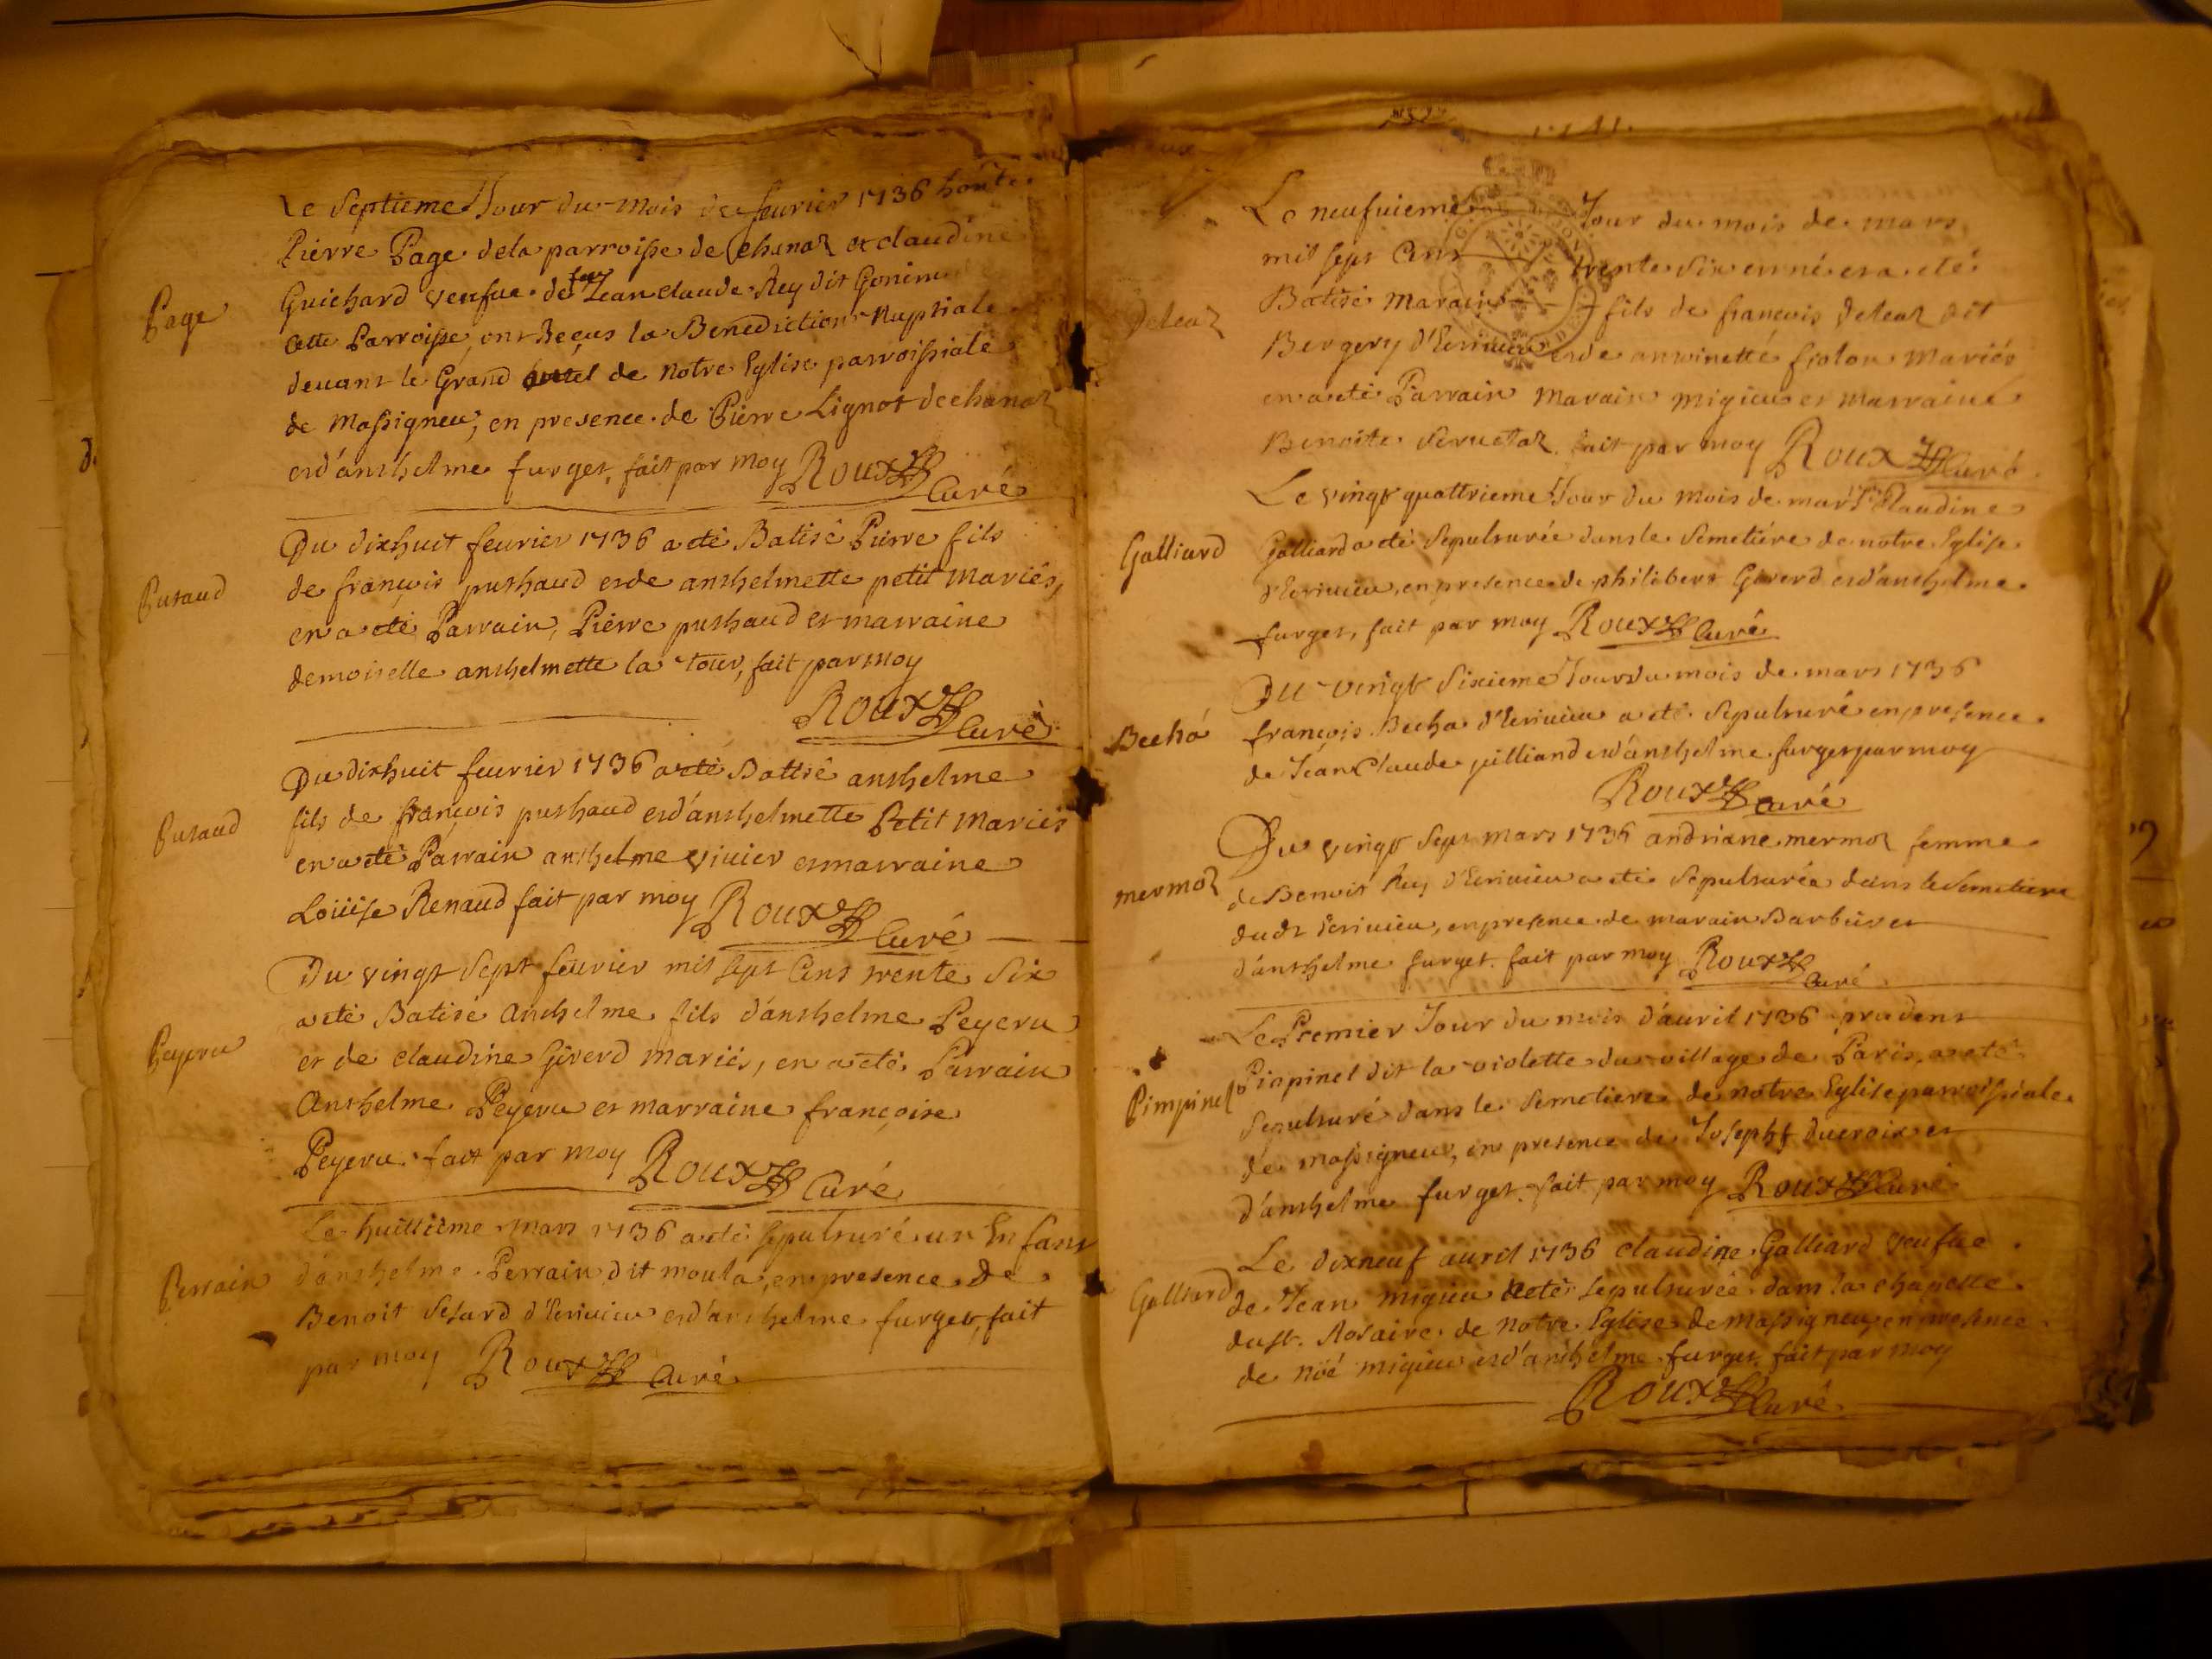 Le Septieme Jour du mois de feurier 1736 honte
Pierre Page de la parroisse de Chanaz et claudine
Page
Guichard veufue de feu Jean claude Rey dit Gonin
cette Parroisse, ont Reçus la Benediction Nuptiale
deuant le Grand autel de Notre Eglise parroissiale
de Massigneu, en presence de Pierre Lignot de chanaz
et d'anthelme furget, fait par moy Roux Curé
Du dixhuit feurier 1736 a eté Batisé Pierre fils
Putaud
de françois puthaud et de anthelmette petit Mariés,
en a eté Parrain, Pierre puthaud et marraine
demoiselle anthelmette la tour, fait par moy
Roux Curé
Du dixhuit feurier 1736 a eté Battisé anthelme
Putaud
fils de françois puthaud et d'anthelmette Petit Mariés
en a eté Parrain anthelme viuier et marraine
Loüise Renaud fait par moy Roux Curé
Du vingt Sept feurier mil sept Cens trente Six
a eté Batisé Anthelme fils d'anthelme Peyeru
Peyeru
et de claudine Girerd mariés, en a eté Parrain
Anthelme Peyeru et marraine françoise
Peyeru fait par moy Roux Curé
Le huittieme mars 1736 a eté sepulturé un Enfant
Perrain
d'anthelme Perrain dit moula, en presence de
Benoit d'Eriuieu et d'anthelme furget, fait
par moy Roux Curé
Le neufuieme Jour du mois de mars
mil sept Cens trente Six en né et a eté
Batisé Marain fils de françois Deleaz dit
Deleaz
Bergery d'Eriuieu et de antoinette Mariés
en a eté Parrain Marain migieu et marraine
Benoite fait par moy Roux Curé
Le vingt quattrieme Jour du mois de mars Claudine
Galliard
Galliard a eté Sepulturée dans le Semetiére de notre Eglise
d'Eriuieu, en presence de philibert Girerd et d'anthelme
furget, fait par moy Roux Curé
Du vingt Sixieme Jour du mois de mars 1736
Becha
françois Becha d'Eriuieu a eté Sepulturé en presence
de Jean Claude juilliand et d'anthelme furget par moy
Roux Curé
Du vingt Sept mars 1736 andriane mermoz femme
mermoz
de Benoit Rey d'Eriuieu a eté Sepulturée dans le Semetiere
dudt Eriuieu, en presence de marain Barbier et
d'anthelme furget. fait par moy Roux Curé
Le Premier Jour du mois d'auril 1736 prudent
Pimpinel
Pinpinel dit la violette du village de Paris, a eté
Sepulturé dans le Semetiere de notre Eglise parroissiale
de massigneu, en presence de Joseph ducroix et
d'anthelme furget. fait par moy Roux Curé
Le dixneuf auril 1736 claudine Galliard veufue
Galliard
de Jean migieu a eté sepulturée dans la chapelle
du st. Rosaire de Notre Eglise de massigneu, en presence
de noé migieu et d'anthelme furget, fait par moy
Roux Curé